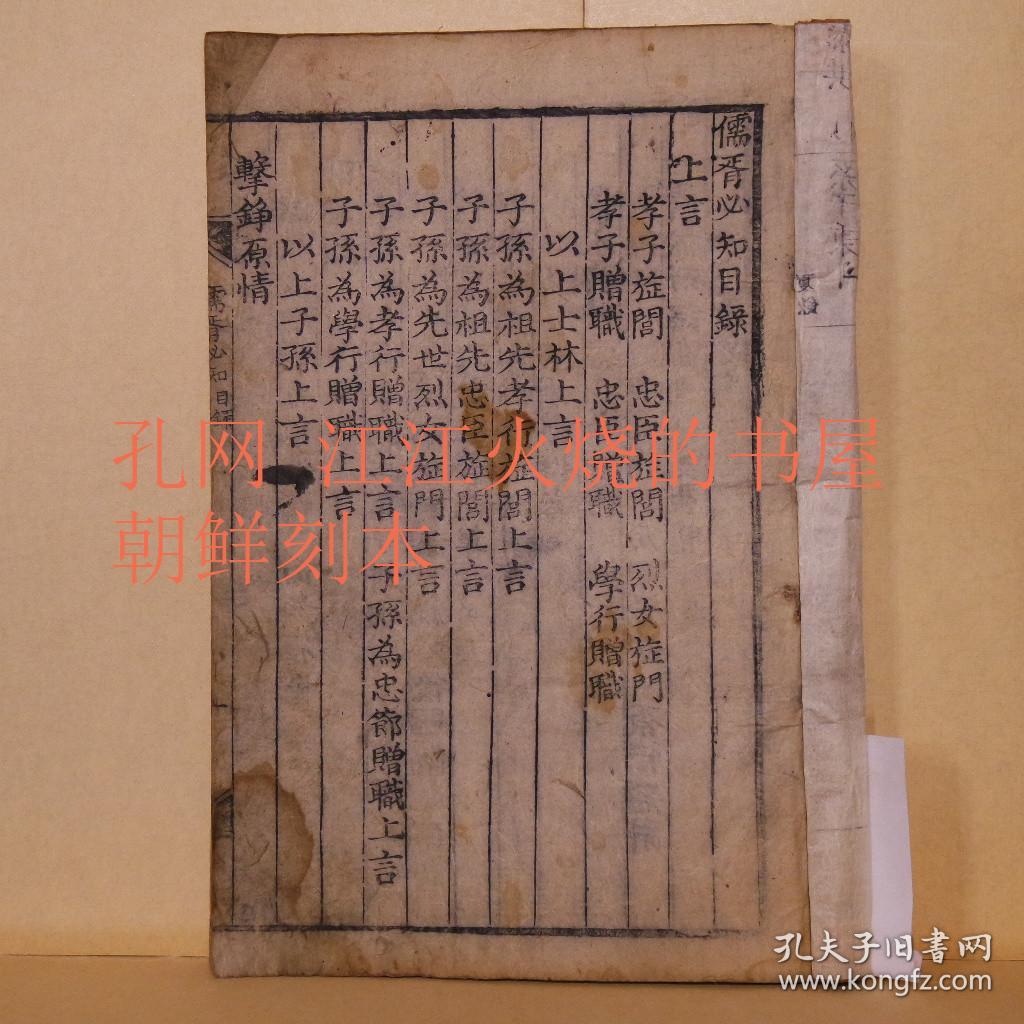 儒胥必知目錄
上言
孝子㫌閭　忠臣㫌閭　烈女㫌門
孝子贈職　忠臣贈職　學行贈職
以上士林上言
子孫為祖先孝行㫌閭上言
子孫為祖先忠臣㫌閭上言
子孫為先世烈女㫌門上言
子孫為孝行贈職上言　子孫為忠節贈職上言
子孫為學行贈職上言
以上子孫上言
擊錚原情
儒胥必知目錄
孔网 江江火烧的书屋
朝鲜刻本
孔夫子旧书网
www.kongfz.com